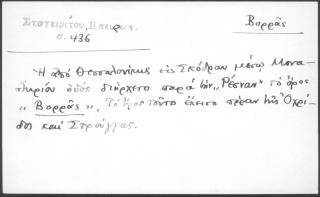 Βορρᾶς
Σταγειρίτου, Ἠπειρωτ.
σ. 436
Ἡ ἀπὸ Θεσσαλονίκης εἰς Σκόδραν μέσῳ Μονα-
στηρίου ὁδὸς διήρχετο παρὰ τὴν "Ρέσναν" τὸ ὄρος
"Βορρᾶς". Τὸ ὄρος τοῦτο ἔκειτο πέραν τῆς Ὀχρί-
δος καὶ Στρούγγας.